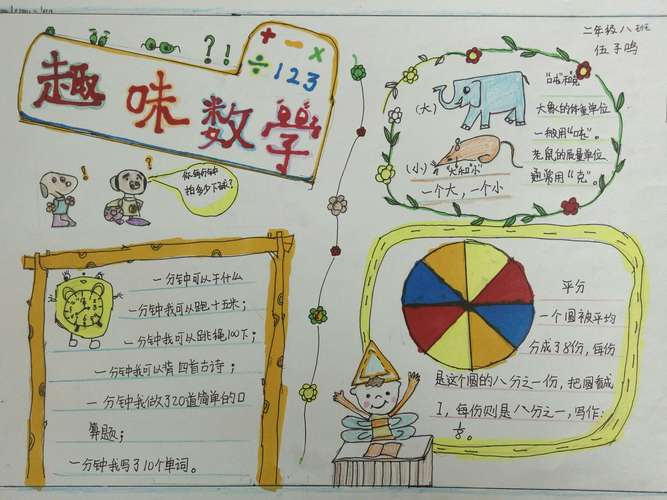 二年级八班
伍子鸣
？！！
+ − ×
÷ 123
趣味数學
你每分钟
拍多少下球？
！
？
"吨"和"克"
（大）
大象的体重单位
一般用"吨"。
老鼠的质量单位
通常用"克"。
（小）
"大"和"小"
一个大，一个小
一分钟可以干什么
一分钟我可以跑十五米；
一分钟我可以跳绳100下；
一分钟我可以读四首古诗；
一分钟我做了20道简单的口
算题；
一分钟我写了10个单词。
平分
一个圆被平均
分成了8份，每份
是这个圆的八分之一份，把圆看成
1，每份则是八分之一，写作：
⅛。